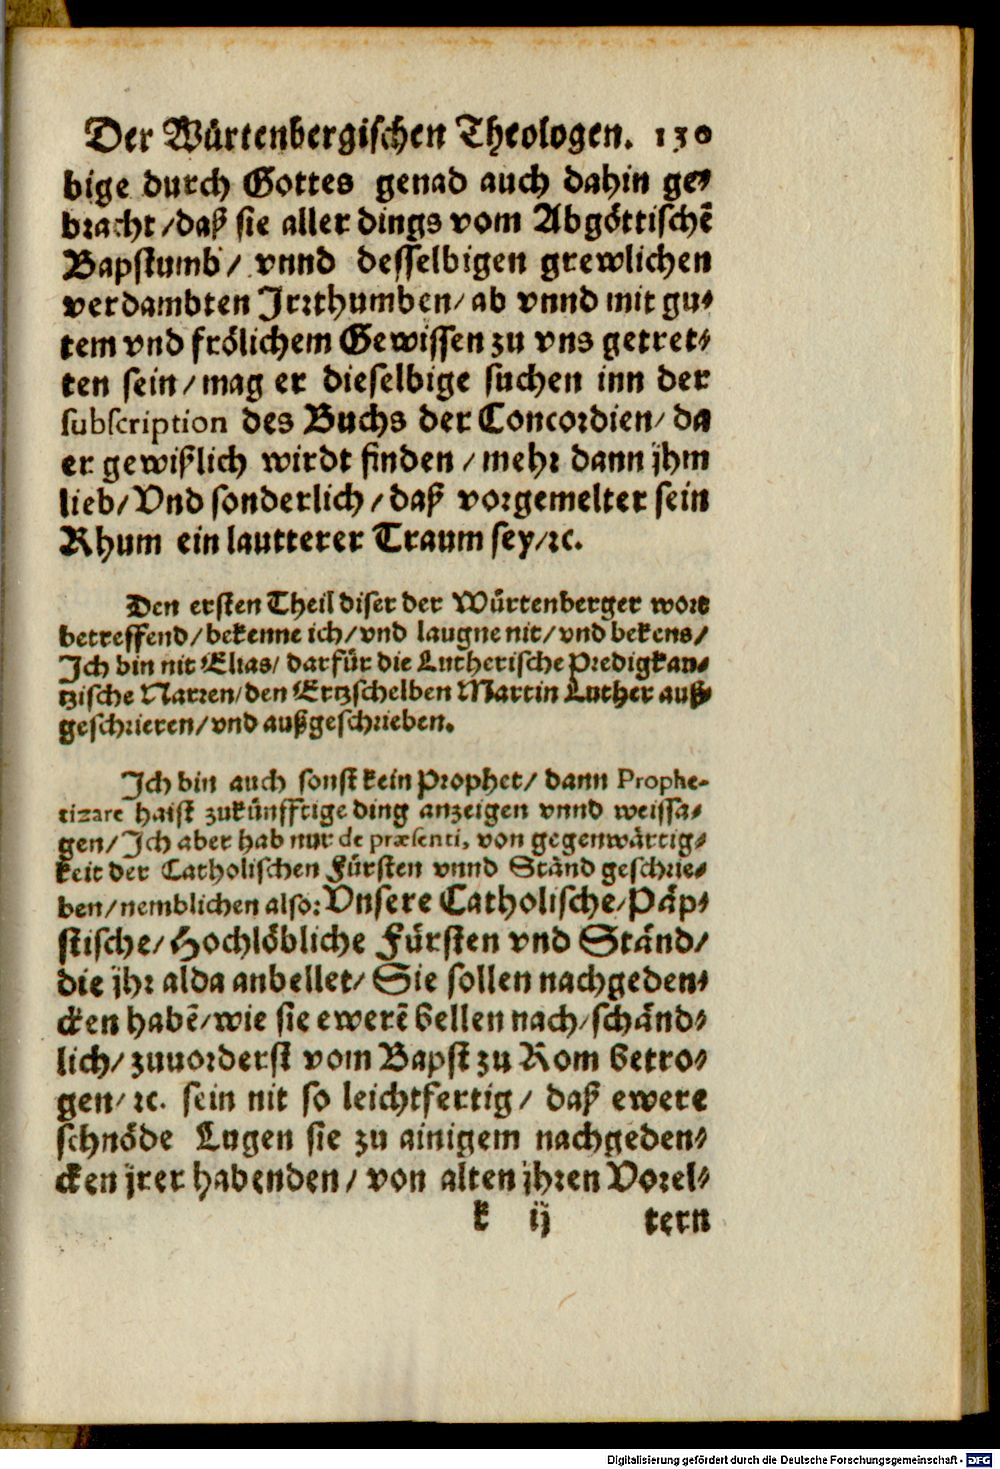 Der Würtenbergischen Theologen. 130
bige durch Gottes genad auch dahin ge⸗
bracht / daß sie aller dings vom Abgöttischẽ
Bapstumb / vnnd desselbigen grewlichen
verdambten Jrrthumben / ab vnnd mit gu⸗
tem vnd frölichem Gewissen zu vns getret⸗
ten sein / mag er dieselbige suchen inn der
subscription des Buchs der Concordien / da
er gewißlich wirdt finden / mehr dann jhm
lieb / Vnd sonderlich / daß vorgemelter sein
Rhum ein lautterer Traum sey / ꝛc.
Den ersten Theil diser der Würtenberger wort
betreffend / bekenne ich / vnd laugne nit / vnd bekens /
Jch bin nit Elias / darfür die Lutherische Predigkan⸗
tzische Narren / den Ertzschelben Martin Luther auß⸗
geschrieren / vnd außgeschrieben.
Jch bin auch sonst kein Prophet / dann Prophe-
tizare haist zukünfftige ding anzeigen vnnd weissa⸗
gen / Jch aber hab nur de præsenti, von gegenwärtig⸗
keit der Catholischen Fürsten vnnd Ständ geschrie⸗
ben / nemblichen also: Vnsere Catholische / Päp⸗
stische / Hochlöbliche Fürsten vnd Ständ /
die jhr alda anbellet / Sie sollen nachgeden⸗
cken habẽ / wie sie ewerẽ bellen nach / schänd⸗
lich / zuuorderst vom Bapst zu Rom betro⸗
gen / ꝛc. sein nit so leichtfertig / daß ewere
schnöde Lugen sie zu ainigem nachgeden⸗
cken jrer habenden / von alten jhren Vorel⸗
k ij tern
Digitalisierung gefördert durch die Deutsche Forschungsgemeinschaft - DFG